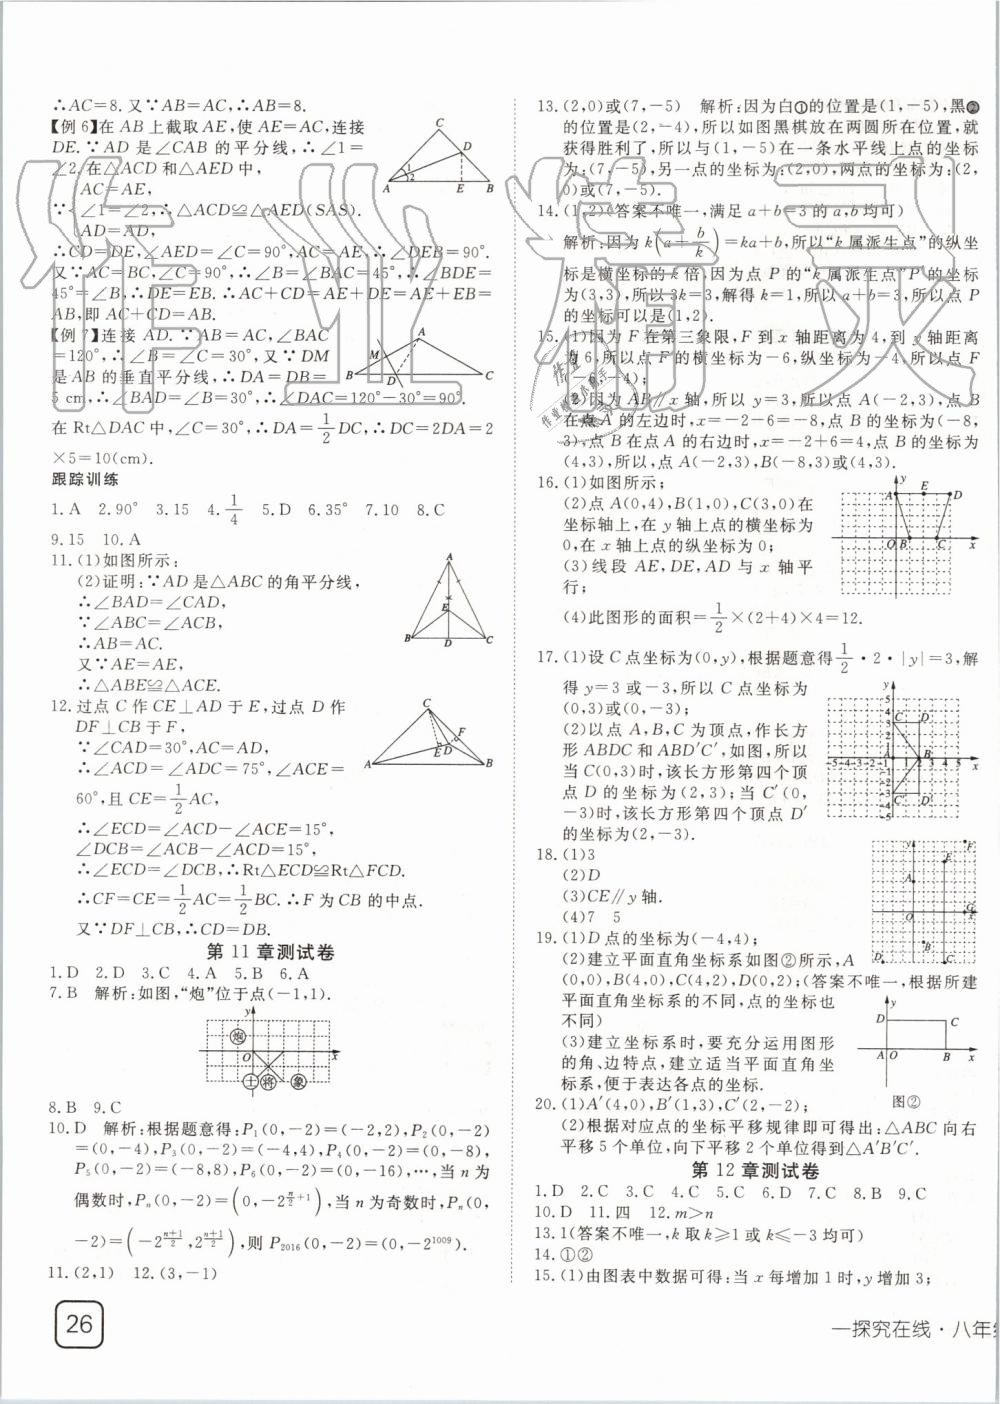 ∴AC=8.又∵AB=AC,∴AB=8.
【例6】在AB上截取AE,使AE=AC,连接
DE.∵AD是∠CAB的平分线,∴∠1=
∠2.在△ACD和△AED中,
AC=AE,
∵∠1=∠2,∴△ACD≌△AED(SAS).
AD=AD,
∴CD=DE,∠AED=∠C=90°,AC=AE,∴∠DEB=90°.
又∵AC=BC,∠C=90°,∴∠B=∠BAC=45°,∴∠BDE=
45°=∠B,∴DE=EB.∴AC+CD=AE+DE=AE+EB=
AB,即AC+CD=AB.
【例7】连接AD.∵AB=AC,∠BAC
=120°,∴∠B=∠C=30°,又∵DM
是AB的垂直平分线,∴DA=DB=
5 cm,∴∠BAD=∠B=30°.∴∠DAC=120°-30°=90°.
在Rt△DAC中,∠C=30°,∴DA=1/2DC,∴DC=2DA=2
×5=10(cm).
跟踪训练
1.A 2.90° 3.15 4.1/4 5.D 6.35° 7.10 8.C
9.15 10.A
11.(1)如图所示:
(2)证明:∵AD是△ABC的角平分线,
∴∠BAD=∠CAD,
∵∠ABC=∠ACB,
∴AB=AC.
又∵AE=AE,
∴△ABE≌△ACE.
12.过点C作CE⊥AD于E,过点D作
DF⊥CB于F,
∵∠CAD=30°,AC=AD,
∴∠ACD=∠ADC=75°,∠ACE=
60°,且CE=1/2AC,
∴∠ECD=∠ACD-∠ACE=15°,
∠DCB=∠ACB-∠ACD=15°,
∴∠ECD=∠DCB,∴Rt△ECD≌Rt△FCD.
∴CF=CE=1/2AC=1/2BC.∴F为CB的中点.
又∵DF⊥CB,∴CD=DB.
第11章测试卷
1.D 2.D 3.C 4.A 5.B 6.A
7.B 解析:如图,“炮”位于点(-1,1).
y
炮
O x
士 将 象
8.B 9.C
10.D 解析:根据题意得:P₁(0,-2)=(-2,2),P₂(0,-2)
=(0,-4),P₃(0,-2)=(-4,4),P₄(0,-2)=(0,-8),
P₅(0,-2)=(-8,8),P₆(0,-2)=(0,-16),…,当n为
偶数时,Pₙ(0,-2)=(0,-2^(n/2+1)),当n为奇数时,Pₙ(0,
-2)=(-2^((n+1)/2),2^((n+1)/2)),则P₂₀₁₆(0,-2)=(0,-2¹⁰⁰⁹).
11.(2,1) 12.(3,-1)
26
13.(2,0)或(7,-5) 解析:因为白①的位置是(1,-5),黑❷
的位置是(2,-4),所以如图黑棋放在两圆所在位置,就
获得胜利了,所以与(1,-5)在一条水平线上点的坐标
为:(7,-5),另一点的坐标为:(2,0),两点的坐标为:(2,
0)或(7,-5).
14.(1,2)(答案不唯一,满足a+b=3的a,b均可)
解析:因为k(a+b/k)=ka+b,所以“k属派生点”的纵坐
标是横坐标的k倍,因为点P的“k属派生点”P的坐标
为(3,3),所以3k=3,解得k=1,所以a+b=3,所以点P
的坐标可以是(1,2).
15.(1)因为F在第三象限,F到x轴距离为4,到y轴距离
为6,所以点F的横坐标为-6,纵坐标为-4,所以点F
(-6,-4);
(2)因为AB∥x轴,所以y=3,所以点A(-2,3),点B
在点A的左边时,x=-2-6=-8,点B的坐标为(-8,
3),点B在点A的右边时,x=-2+6=4,点B的坐标为
(4,3),所以,点A(-2,3),B(-8,3)或(4,3).
16.(1)如图所示;
(2)点A(0,4),B(1,0),C(3,0)在
坐标轴上,在y轴上点的横坐标为
0,在x轴上点的纵坐标为0;
(3)线段AE,DE,AD与x轴平
行;
(4)此图形的面积=1/2×(2+4)×4=12.
17.(1)设C点坐标为(0,y),根据题意得1/2·2·|y|=3,解
得y=3或-3,所以C点坐标为
(0,3)或(0,-3);
(2)以点A,B,C为顶点,作长方
形ABDC和ABD′C′,如图,所以
当C(0,3)时,该长方形第四个顶
点D的坐标为(2,3);当C′(0,
-3)时,该长方形第四个顶点D′
的坐标为(2,-3).
18.(1)3
(2)D
(3)CE∥y轴.
(4)7 5
19.(1)D点的坐标为(-4,4);
(2)建立平面直角坐标系如图②所示,A
(0,0),B(4,0),C(4,2),D(0,2);(答案不唯一,根据所建
平面直角坐标系的不同,点的坐标也
不同)
(3)建立坐标系时,要充分运用图形
的角、边特点,建立适当平面直角坐
标系,便于表达各点的坐标.
图②
20.(1)A′(4,0),B′(1,3),C′(2,-2);
(2)根据对应点的坐标平移规律即可得出:△ABC向右
平移5个单位,向下平移2个单位得到△A′B′C′.
第12章测试卷
1.D 2.C 3.C 4.C 5.C 6.D 7.C 8.B 9.C
10.D 11.四 12.m>n
13.1(答案不唯一,k取k≥1或k≤-3均可)
14.①②
15.(1)由图表中数据可得:当x每增加1时,y增加3;
—探究在线·八年级
作业精灵